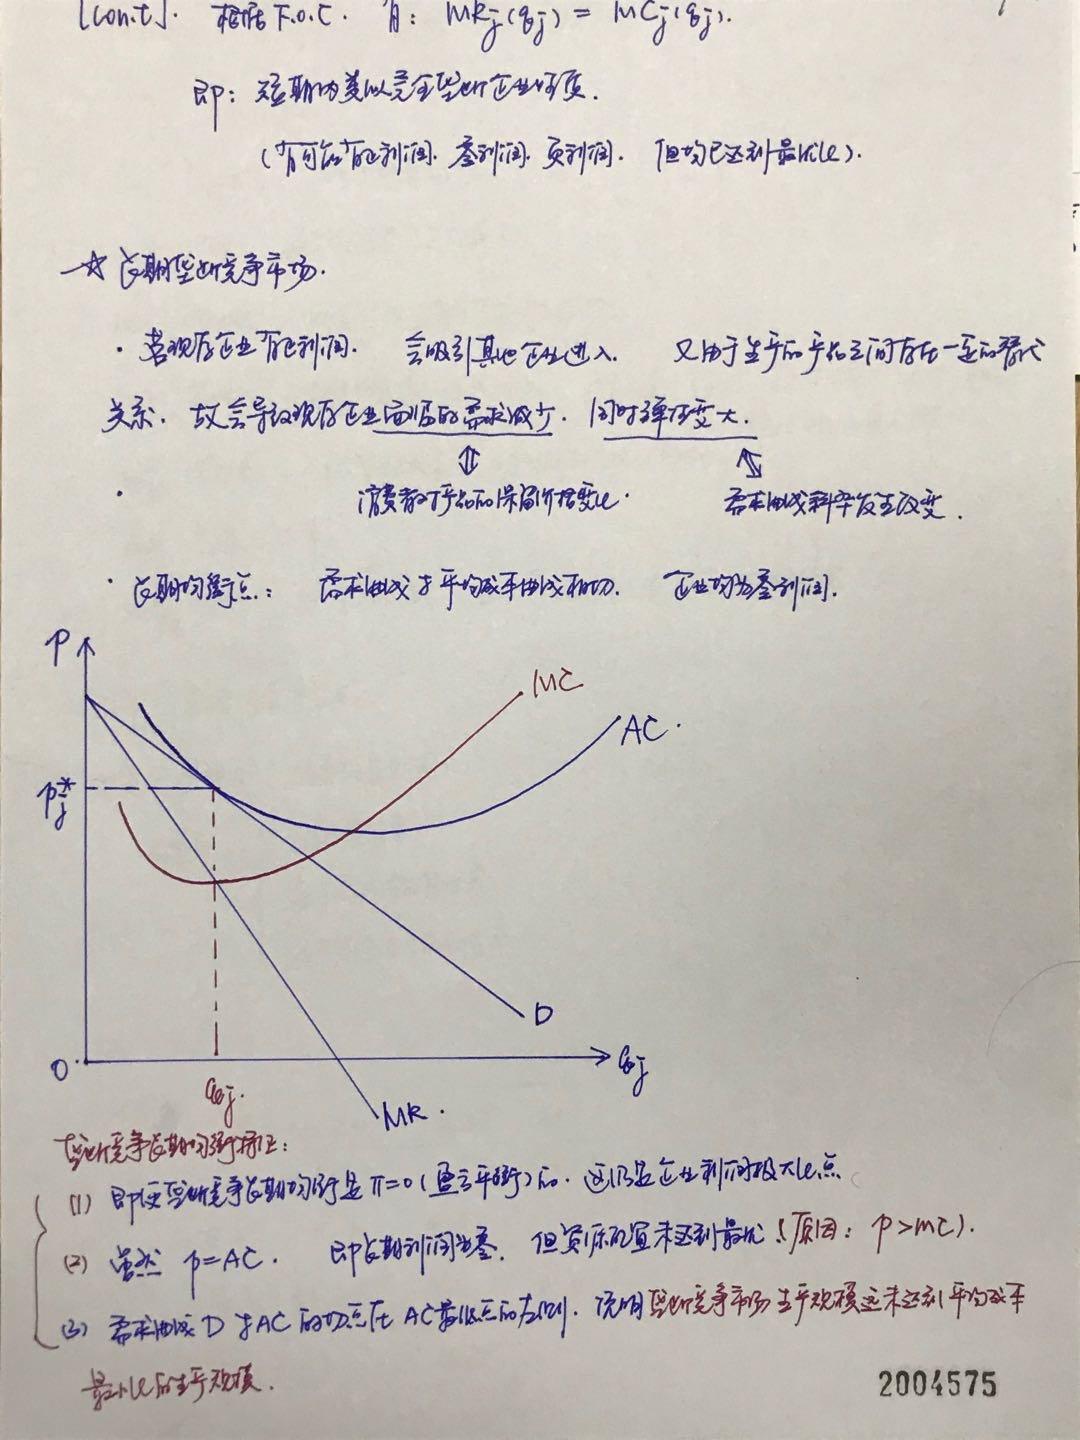 [Con.t]. 根据 F.O.C. 有: MRj(qj) = MCj(qj).
即: 短期内类似完全垄断企业性质.
(有可能有正利润. 零利润. 负利润. 但均已达到最优化).
☆ 长期垄断竞争市场.
· 若现存企业有正利润. 会吸引其他企业进入. 又由于生产的产品之间存在一定的替代
关系. 故会导致现存企业面临的需求减少. 同时弹性变大.
⇕ ⇕
· 消费者对产品的保留价格变化. 需求曲线斜率发生改变.
· 长期均衡点: 需求曲线与平均成本曲线相切. 企业均为零利润.
P
MC
AC.
Pj*
D
O
qj
qj.
MR.
垄断竞争长期均衡特征:
(1) 即使垄断竞争长期均衡是 π=0 (盈亏平衡) 的. 这仍是企业利润极大化点
(2) 虽然 P=AC. 即长期利润为零. 但资源配置未达到最优 (原因: P>MC).
(3) 需求曲线 D 与 AC 的切点在 AC 最低点的左侧. 说明垄断竞争市场生产规模远未达到平均成本
最小化的生产规模.
2004575